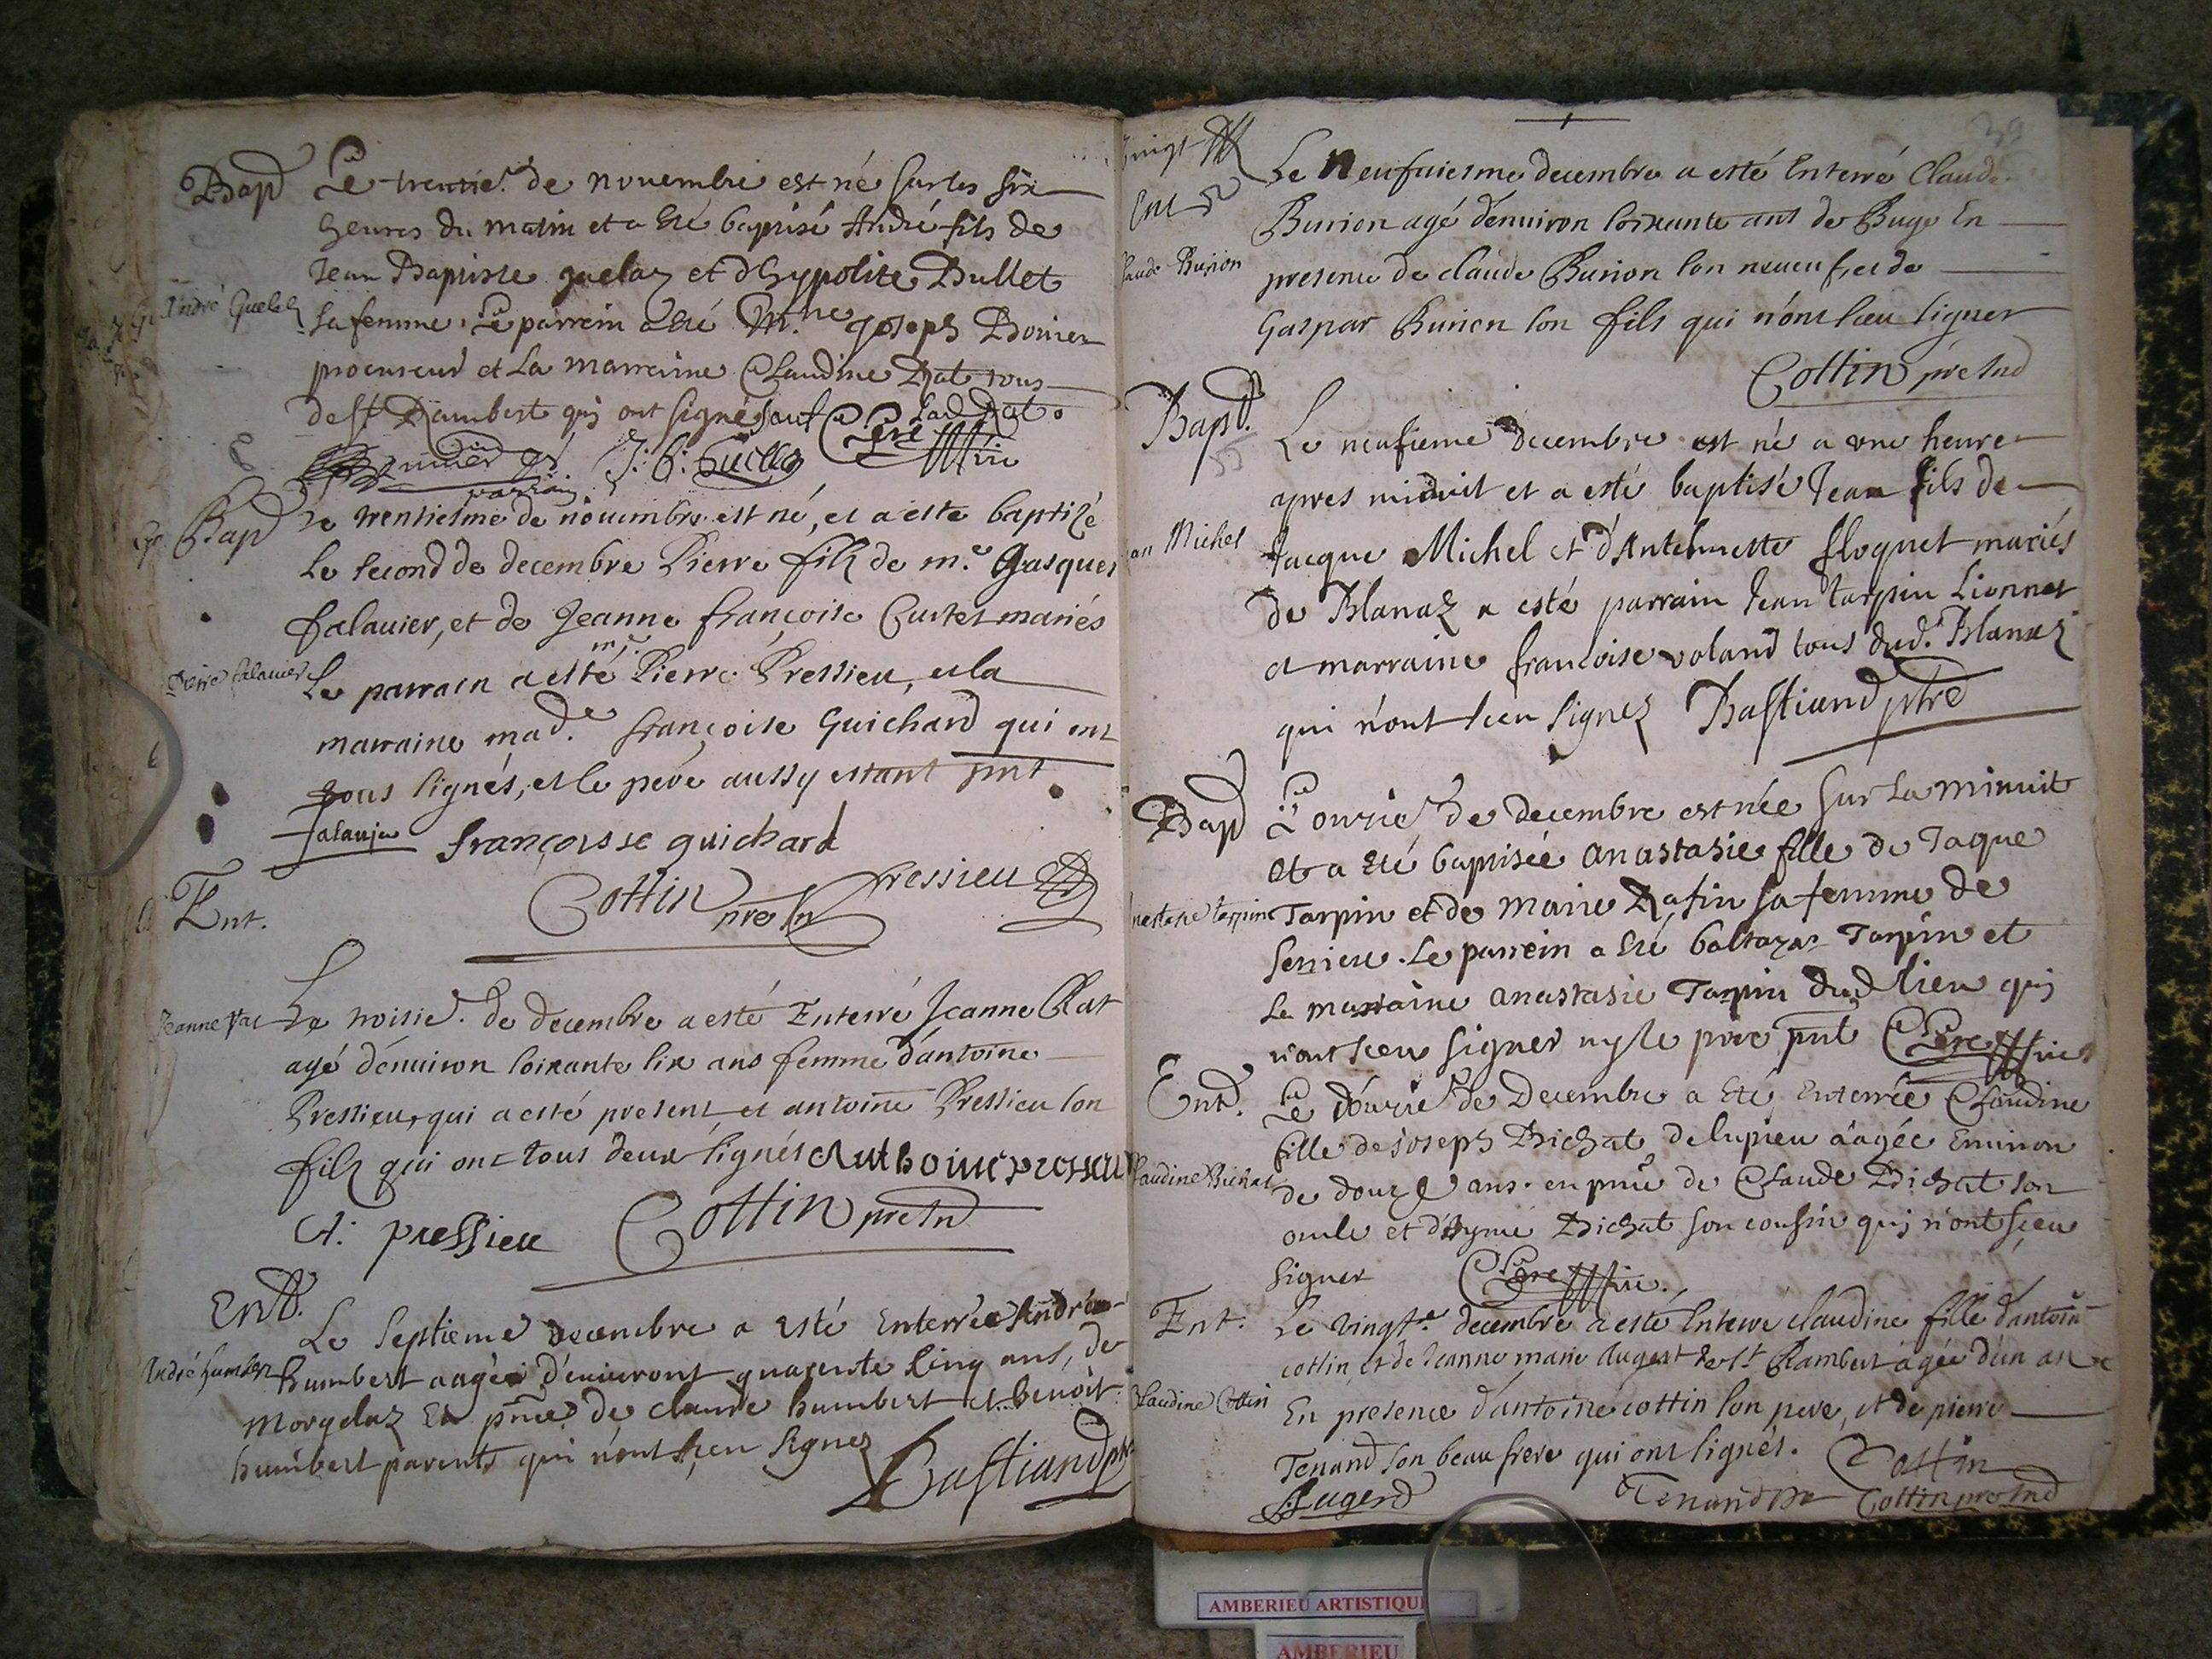 Bap
Le trentie. de novembre est né sur les six
heures du matin et a eté baptisé André fils de
Jean Baptiste guelaz et d'hypolite Bullet
André Guelaz
sa femme. Le parrein a eté Mre joseph
procureur et la marraine Claudine Rat tous
de st Rambert qui ont signé sauf lad Rat.
parrain
Bap
Le trentiesme de novembre est né, et a este baptizé
le second de decembre Pierre filz de mr. Gasques
falavier, et de Jeanne françoise Curtet mariés
Pierre falavier
Le parrain a esté mr. Pierre Pressieu, et la
marraine made. françoise Guichard qui ont
tous signés, et le pere aussy estant pnt.
falavier françoisse guichard
Cottin pressieu
Ent.
Jeanne Rat
Le troisie. de decembre a esté Enterré Jeanne Rat
agé d'environ soixante six ans femme d'antoine
Pressieu, qui a esté present et antoine Pressieu son
filz qui ont tous deux signés Anthoine pressieu
A: pressieu Cottin
Ent.
Le septieme decembre a esté Enterrée André
André humbert
humbert aagée d'environt quarente cinq ans, de
Morgelaz En pnce de claude humbert et benoit
humbert parents qui n'ont sçeu signez
Bastiand ptre
39
vingt
Ent 52
Le neufviesme decembre a esté Enterré Claude
Burion agé d'environ soixante ans de Buge En
Claude Burion
presence de claude Burion son neveu et de
Gaspar Burion son fils qui n'ont sceu signer
Cottin
Bapt.
55
Le neufieme decembre est né a une heure
apres minuit et a esté baptisé Jean fils de
Jean Michel
Jacque Michel et d'Anthelmette floquet mariés
de Blanaz a esté parrain Jean tarpin Lionnet
et marraine francoise voland tous dud. Blanaz
qui n'ont sceu signez Bastiand ptre
Bap
L'onzie. de decembre est née sur la minuit
et a eté baptisée anastasie fille de Jaque
Anastasie tarpin
Tarpin et de marie Rafin sa femme de
serrieu. Le parrein a eté baltazar Tarpin et
la marraine anastasie Tarpin dud lieu qui
n'ont sceu signer ny le pere pnt
Ent.
Le douzie de Decembre a eté Enterrée Claudine
fille de joseph Bichat de lupieu aagée Environ
Claudine Bichat
de douze ans. en pnce de Claude Bichat son
oncle et d'Aymé Bichat son cousin qui n'ont sçeu
signer
Ent.
Le vingte. decembre a esté Enterré claudine fille d'antoine
cottin, et de Jeanne marie Augert de st Rambert agée d'un an
Claudine Cottin
En presence d'antoine cottin son pere, et de pierre
Tenand son beau frere qui ont signés. Cottin
Augerd Tenand Cottin
AMBERIEU ARTISTIQUE
AMBERIEU